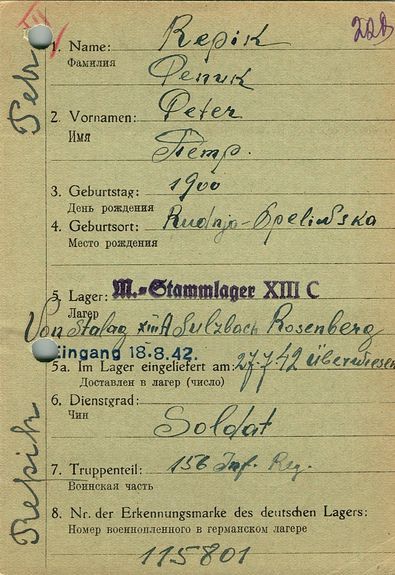 220
1. Name: Repik
Фамилия Репик
2. Vornamen: Peter
Имя Петр.
3. Geburtstag: 1900
День рождения
4. Geburtsort: Rudnja-
Место рождения
5. Lager: M.-Stammlager XIII C
Лагерь
Von Stalag XIII A Sulzbach Rosenberg
Eingang 18.8.42.
5a. Im Lager eingeliefert am: 27.7.42 überwiesen
Доставлен в лагерь (число)
6. Dienstgrad:
Чин Soldat
7. Truppenteil: 156 Inf. Reg.
Воинская часть
8. Nr. der Erkennungsmarke des deutschen Lagers:
Номер военнопленного в германском лагере
115801
Repik
Petr